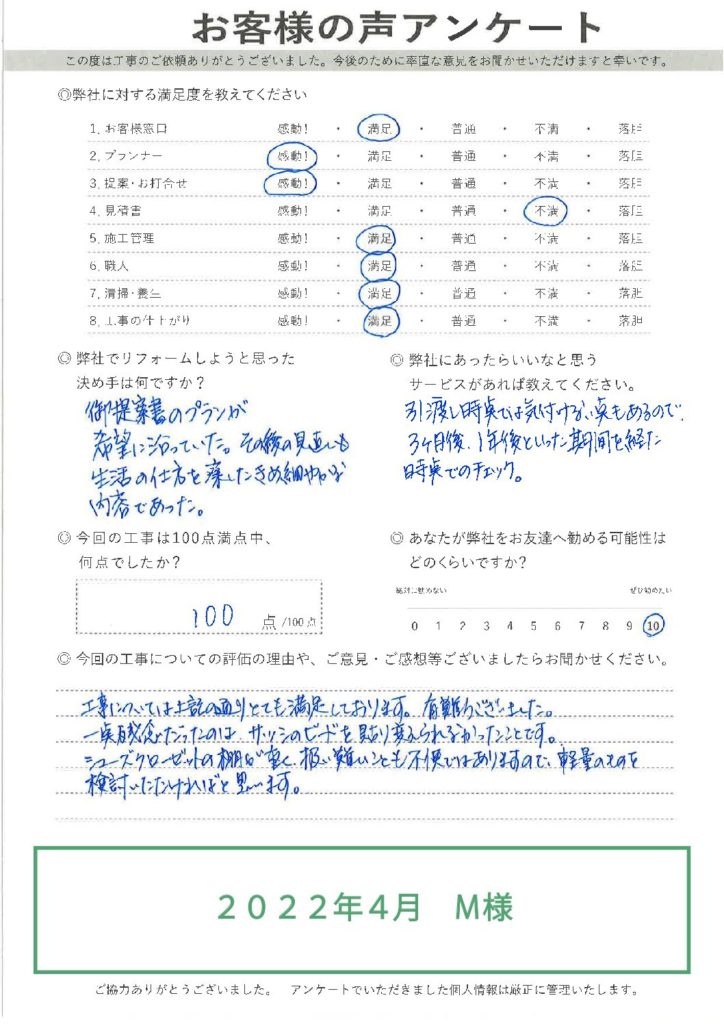 お客様の声アンケート
この度は工事のご依頼ありがとうございました。今後のために率直な意見をお聞かせいただけますと幸いです。
◎弊社に対する満足度を教えてください
1. お客様窓口 感動! ・ 満足 ・ 普通 ・ 不満 ・ 落胆
2. プランナー 感動! ・ 満足 ・ 普通 ・ 不満 ・ 落胆
3. 提案・お打合せ 感動! ・ 満足 ・ 普通 ・ 不満 ・ 落胆
4. 見積書 感動! ・ 満足 ・ 普通 ・ 不満 ・ 落胆
5. 施工管理 感動! ・ 満足 ・ 普通 ・ 不満 ・ 落胆
6. 職人 感動! ・ 満足 ・ 普通 ・ 不満 ・ 落胆
7. 清掃・養生 感動! ・ 満足 ・ 普通 ・ 不満 ・ 落胆
8. 工事の仕上がり 感動! ・ 満足 ・ 普通 ・ 不満 ・ 落胆
◎ 弊社でリフォームしようと思った
決め手は何ですか?
御提案書のプランが
希望に沿っていた。その後の見直しも
生活の仕方を汲したきめ細やかな
内容であった。
◎ 弊社にあったらいいなと思う
サービスがあれば教えてください。
引渡し時点では気付けない点もあるので、
3ヶ月後、1年後といった期間を経た
時点でのチェック。
◎ 今回の工事は100点満点中、
何点でしたか?
100 点 /100点
◎ あなたが弊社をお友達へ勧める可能性は
どのくらいですか?
絶対に勧めない ぜひ勧めたい
0 1 2 3 4 5 6 7 8 9 10
◎ 今回の工事についての評価の理由や、ご意見・ご感想等ございましたらお聞かせください。
工事については上記の通りとても満足しております。有難うございました。
一点残念だったのは、サッシのビードを貼り変えられなかったことです。
シューズクローゼットの棚が重く、扱い難いことも不便ではありますので、軽量のものを
検討いただければと思います。
2022年4月 M様
ご協力ありがとうございました。 アンケートでいただきました個人情報は厳正に管理いたします。